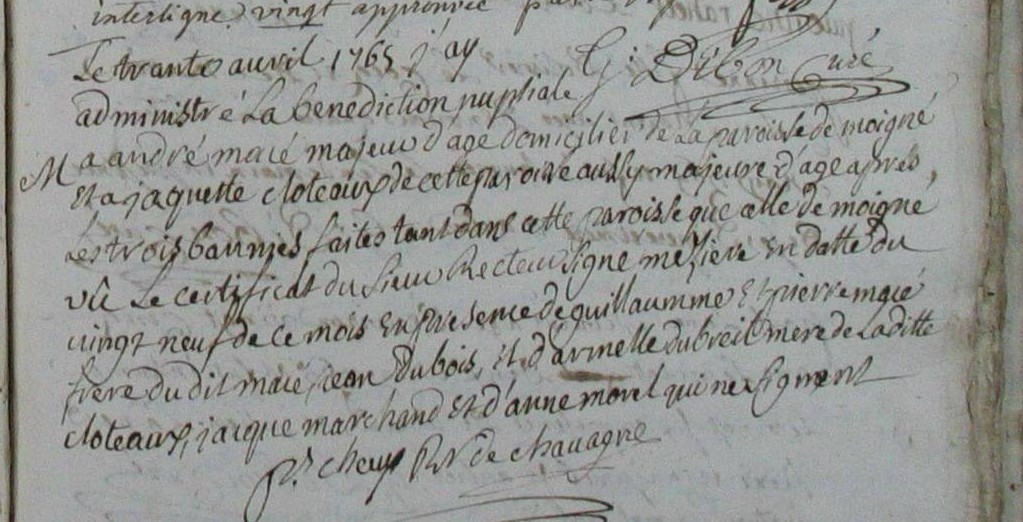 interligne vingt approuvée
Le trante auvril 1765 j'ay
G Dibon Curé
administré La benediction nuptiale
M a andré macé majeur d'age domicilier de La paroisse de moigné
Et a jaquette cloteaux de cette paroisse aussy majeure d'age après
Les trois bannies faites tant dans cette paroisse que celle de moigné
vû Le certificat du sieur Recteur signé meziere En datte du
vingt neuf de ce mois En presence de guillaumme Et pierre macé
frere du dit macé, jean dubois, Et d'armelle dubreil mere de La ditte
cloteaux, jacque marchand Et d'anne morel qui ne signent
de chavagne